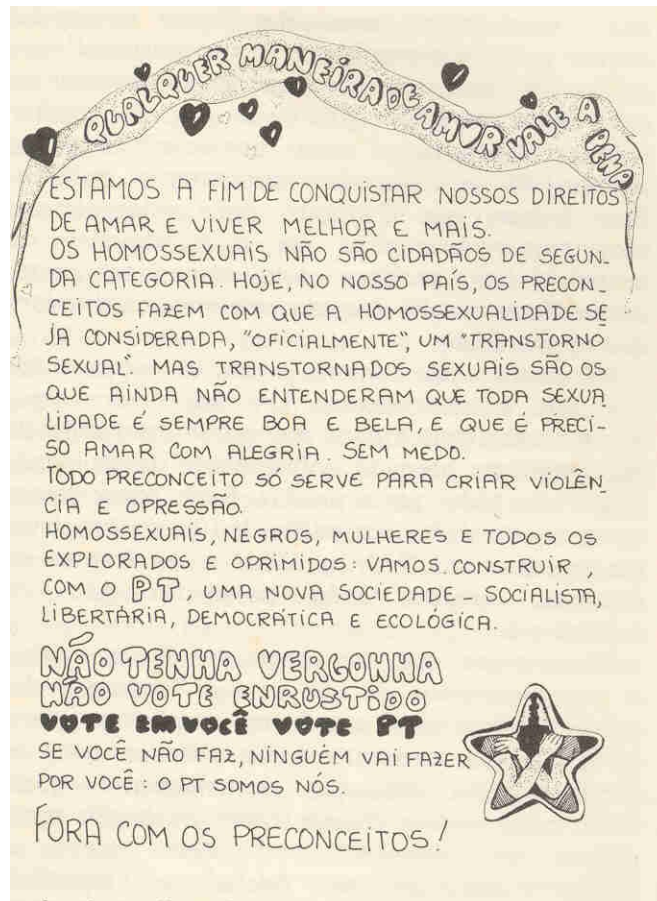 QUALQUER MANEIRA DE AMOR VALE A PENA
ESTAMOS A FIM DE CONQUISTAR NOSSOS DIREITOS
DE AMAR E VIVER MELHOR E MAIS.
OS HOMOSSEXUAIS NÃO SÃO CIDADÃOS DE SEGUN_
DA CATEGORIA. HOJE, NO NOSSO PAÍS, OS PRECON_
CEITOS FAZEM COM QUE A HOMOSSEXUALIDADE SE
JA CONSIDERADA, "OFICIALMENTE", UM "TRANSTORNO
SEXUAL". MAS TRANSTORNADOS SEXUAIS SÃO OS
QUE AINDA NÃO ENTENDERAM QUE TODA SEXUA
LIDADE É SEMPRE BOA E BELA, E QUE É PRECI-
SO AMAR COM ALEGRIA. SEM MEDO.
TODO PRECONCEITO SÓ SERVE PARA CRIAR VIOLÊN_
CIA E OPRESSÃO.
HOMOSSEXUAIS, NEGROS, MULHERES E TODOS OS
EXPLORADOS E OPRIMIDOS: VAMOS CONSTRUIR,
COM O PT, UMA NOVA SOCIEDADE - SOCIALISTA,
LIBERTÁRIA, DEMOCRÁTICA E ECOLÓGICA.
NÃO TENHA VERGONHA
NÃO VOTE ENRUSTIDO
VOTE EM VOCÊ VOTE PT
SE VOCÊ NÃO FAZ, NINGUÉM VAI FAZER
POR VOCÊ: O PT SOMOS NÓS.
FORA COM OS PRECONCEITOS!